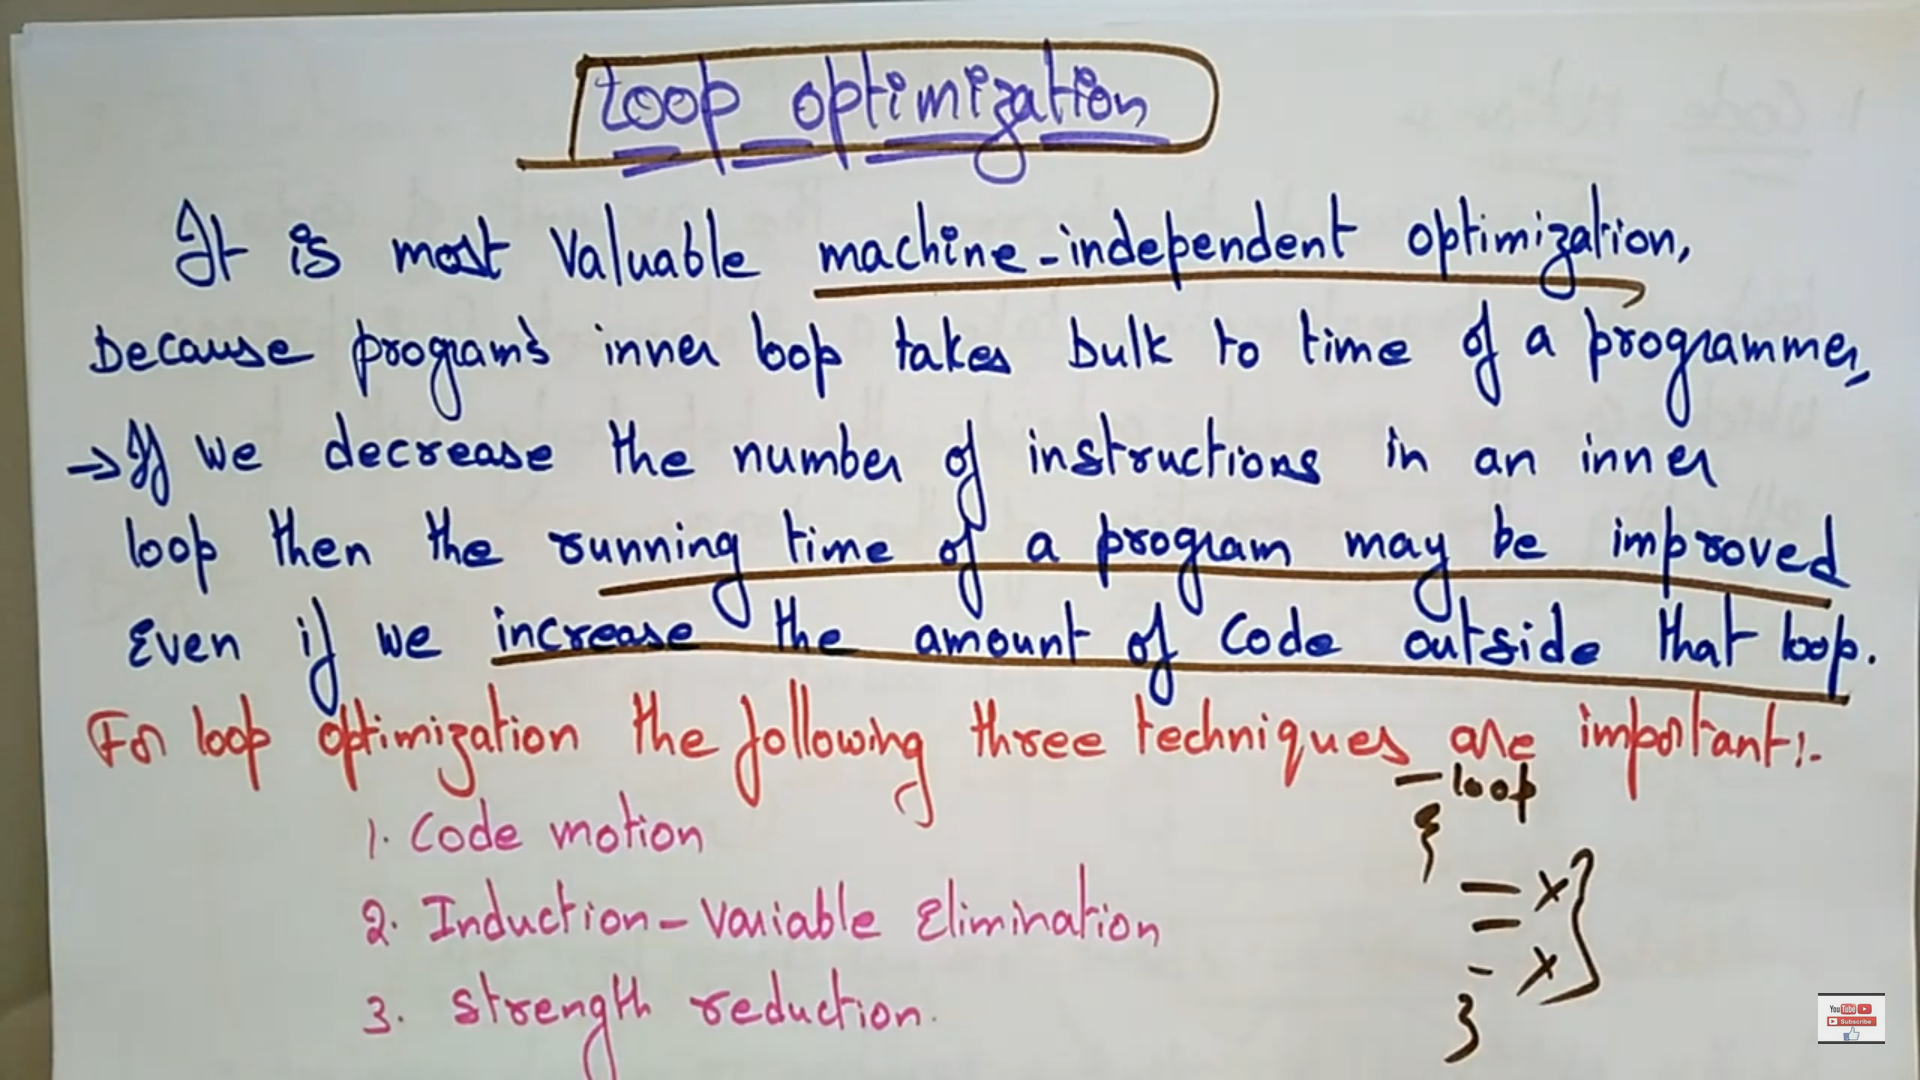 Loop optimization
It is most valuable machine-independent optimization,
Because program's inner loop takes bulk to time of a programmer,
→ If we decrease the number of instructions in an inner
loop then the running time of a program may be improved
Even if we increase the amount of code outside that loop.
For loop optimization the following three techniques are important:-
– loop
{
1. Code motion
= x }
2. Induction-Variable Elimination
- x
3. Strength reduction.
}
YouTube
Subscribe